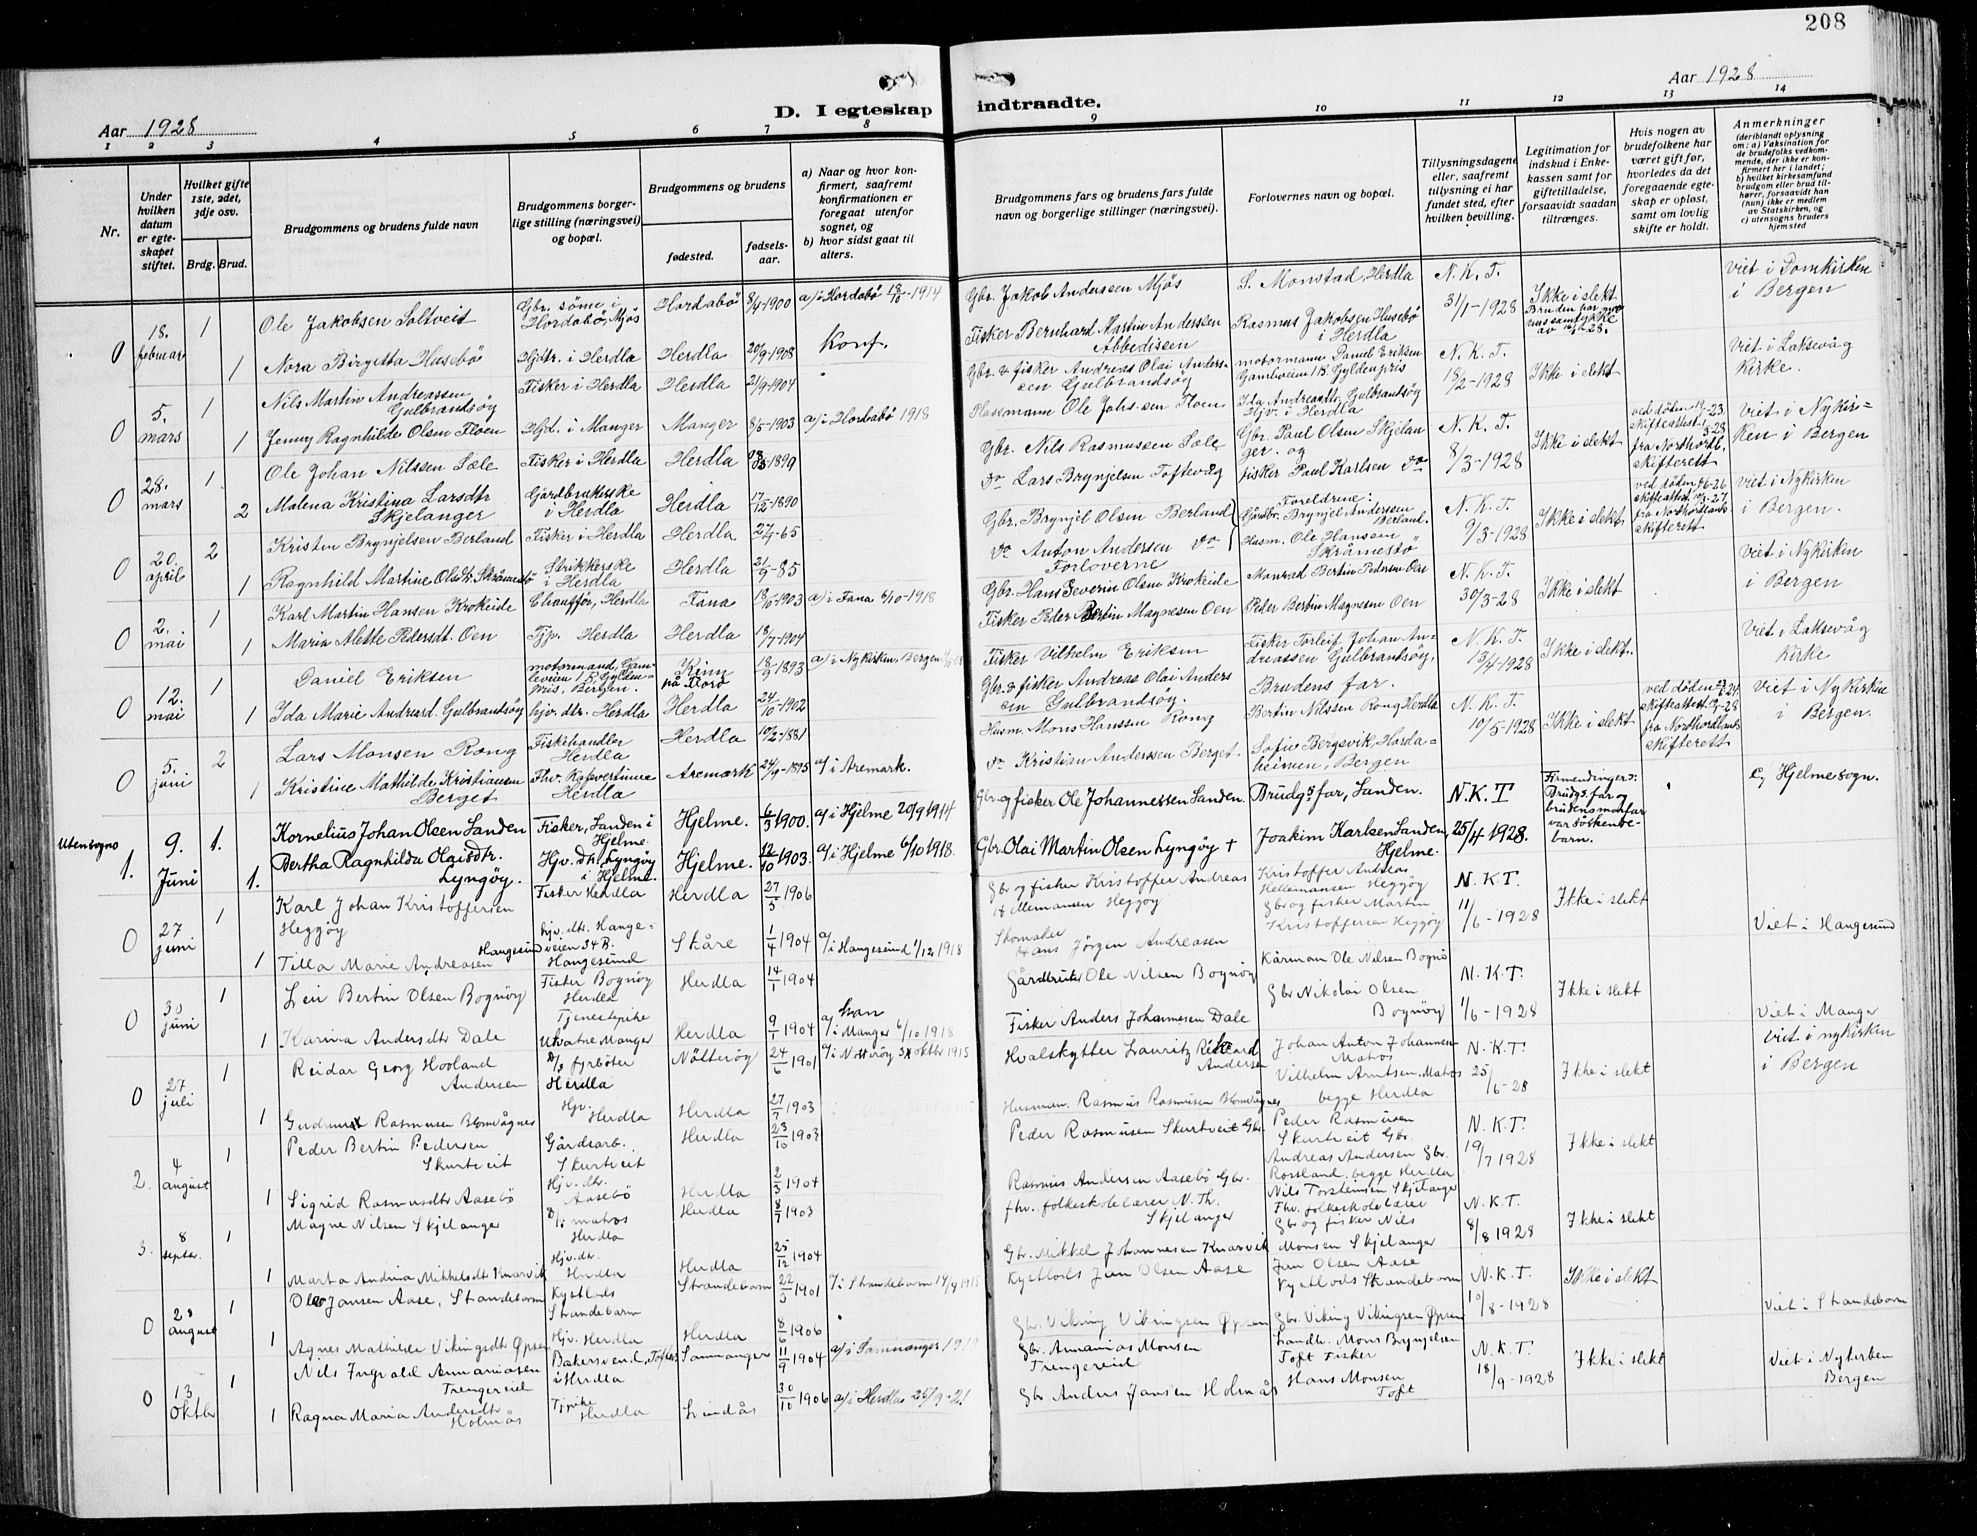 208
Aar 1928
D. I egteskap indtraadte.
Aar 1928
1 2 3 4 5 6 7 8 9 10 11 12 13 14
Nr.
Under hvilken datum er egteskapet stiftet.
Hvilket gifte 1ste, 2det, 3dje osv.
Brdg. Brud.
Brudgommens og brudens fulde navn
Brudgommens borgerlige stilling (næringsvei) og bopæl.
Brudgommens og brudens
fødested.
fødselsaar.
a) Naar og hvor konfirmert, saafremt konfirmationen er foregaat utenfor sognet, og
b) hvor sidst gaat til alters.
Brudgommens fars og brudens fars fulde navn og borgerlige stillinger (næringsvei).
Forlovernes navn og bopæl.
Tillysningsdagene eller, saafremt tillysning ei har fundet sted, efter hvilken bevilling.
Legitimation for indskud i Enkekassen samt for giftetilladelse, forsaavidt saadan tiltrænges.
Hvis nogen av brudefolkene har været gift før, hvorledes da det foregaaende egteskap er opløst, samt om lovlig skifte er holdt.
Anmerkninger
(deriblandt oplysning om: a) Vaksination for de brudefolks vedkommende, der ikke er konfirmert her i landet; b) hvilket kirkesamfund brudgom eller brud tilhører, forsaavidt han (hun) ikke er medlem av Statskirken, og c) utensogns bruders hjemsted
0 18. februar 1 Ole Jakobsen Soltveit Gbr. sønn i Hordabø, Mjøs Hordabø 8/4-1900 a/i Hordabø 1914 Gbr. Jakob Anderssen Mjøs S. Monstad, Herdla N.K.T. 31/1-1928 Ikke i slekt Bruden har samtykke Viet i Domkirken i Bergen
1 Nora Birgitta Husebø Hjdtr. i Herdla Herdla 20/9-1908 Konf. Fisker Bernhard Martin Anderssen Abbedissen Rasmus Jakobsen Husebø i Herdla
0 5. mars 1 Nils Martin Andreassen Gulbrandsøy Fisker i Herdla Herdla 21/9-1904 Gbr. & fisker Andreas Olai Anderssen Gulbrandsøy motormann Daniel Eriksen Gamleveien 1B. Gyldenpris N.K.T. 18/2-1928 Ikke i slekt Viet i Laksevåg Kirke.
1 Jenny Ragnhilde Olsen Floen Hjd. i Manger Manger 8/5-1903 a/i Hordabø 1918 Plassmann Ole Johs.sen Floen Ida Andreasdt. Gulbrandsøy Hjv. i Herdla
0 28. mars 1 Ole Johan Nilssen Sæle Fisker i Herdla Herdla 1899 Gbr. Nils Rasmussen Sæle Gbr. Paul Olsen Skjelanger. og N.K.T. 8/3-1928 Ikke i slekt ved døden skifteattest fra Nordhordl. skifterett Viet i Nykirken i Bergen
2 Malena Kristina Larsdtr Skjelanger Gårdbrukerske i Herdla Herdla 17/12-1890 do Lars Brynjelsen Toftevåg fisker Paul Karlsen do
0 20. april 2 Kristen Brynjelsen Berland Fisker i Herdla Herdla 27/1-65 Gbr. Brynjel Olsen Berland Foreldrene: Gårdbr. Brynjel Anderssen Berland. N.K.T. 9/3-1928 Ikke i slekt. ved døden skifteattest fra Nordhordlands skifterett viet i Nykirken i Bergen.
1 Ragnhild Martine Olsdtr. Skråmestø Strikkerske i Herdla Herdla 21/9-85 do Anton Andersen do Forloverne Husm. Ole Hansen Skråmestø
0 2. mai 1 Karl Martin Hansen Krokeide Chauffør, Herdla Fana 18/10-1903 a/i Fana 6/10-1918 Gbr. Hans Severin Olsen Krokeide Monrad Bertin Pedersen Oen N.K.T. 30/3-28 Ikke i slekt Viet i Nykirken i Bergen
1 Maria Alette Pedersdt. Oen Tjp. Herdla Herdla 18/7-1904 Fisker Peder Bertin Magnesen Oen Peder Bertin Magnesen Oen
0 12. mai 1 Daniel Eriksen motormand, Gamleveien 1B, Gyldenpris, Bergen. Kinn på Florø 18/9-1893 a/i Nykirken, Bergen Fisker Vilhelm Eriksen Fisker Torleif Johan Andreassen Gulbrandsøy, N.K.T. 13/4-1928 Ikke i slekt. Viet i Laksevåg Kirke
1 Ida Marie Andreasd. Gulbrandsøy hjv. dtr. Herdla Herdla 24/10-1902 Gbr. & fisker Andreas Olai Anderssen Gulbrandsøy. Brudens far.
0 5. juni 2 Lars Monsen Rong Fiskehandler Herdla Herdla 10/2-1881 Husm. Mons Hanssen Rong Bertin Nilssen Rong Herdla N.K.T. 10/5-1928 Ikke i slekt ved døden skifteattest fra Nordhordlands skifterett Viet i Nykirken i Bergen.
1 Kristine Mathilde Kristiansen Berget Fhv. Kafevertinne Herdla Aremark 24/9-1895 a/i Aremark. do Kristian Anderssen Berget. Sofie Bergsvik, Hordaheimen, Bergen
Utensogns
1. 9. Juni 1. Kornelius Johan Olsen Landen Fisker, Landen i Hjelme. Hjelme. 6/3 1900. a/i Hjelme 20/9 1914. Gbr. og fisker Ole Johannessen Landen. Brudgs far, Landen. N.K.T 25/4 1928. Firmendinger: Brudgs. far og brudens morfar var søskenbebarn. c/ Hjelme sogn.
1. Bertha Ragnhilda Olaisdtr. Lyngøy. Hjv. dtr. Lyngøy i Hjelme. Hjelme. 12/10 1903. a/i Hjelme 6/10 1918. Gbr. Olai Martin Olsen Lyngøy + Joakim Karlsen Landen, Hjelme.
0 27 juni 1 Karl Johan Kristoffersen Heggøy Fisker Herdla Herdla 27/5 1906 Gbr og fisker Kristoffer Andreas Hellemansen Heggøy Kristoffer Andreas Hellemansen Heggøy N.K.T. 11/6-1928 Ikke i slekt Viet i Haugesund
1 Tilla Marie Andreasen Haugesund hjv. dtr. Haugeveien 34 B. Haugesund Skåre 1/4 1904 a/i Haugesund 1/12 1918 Skomaker Hans Jørgen Andreasen Gbr og fisker Martin Kristoffersen Heggøy
0 30 juni 1 Leiv Bertin Olsen Bognøy Fisker Bognøy Herdla Herdla 14/1 1904 Gårdbruker Ole Nilsen Bognøy Kårmann Ole Nilsen Bognø N.K.T. 1/6-1928 Ikke i slekt Viet i Manger
1 Karina Andersdtr Dale Tjenestepike Utvatne Manger Herdla 9/1 1904 a/ hun i Manger 6/10 1918 Fisker Anders Johannesen Dale Gbr Nikolai Olsen Bognøy
0 27 juli 1 Reidar Georg Hovland Andersen D/s fyrbøter Herdla Nøtterøy 24/6 1901 a/i Nøtterøy 3 oktbr 1915 Hvalskytter Lauritz Rikard Andersen Johan Anton Johannesen Matros N.K.T. 25/6-28 Ikke i slekt Viet i nykirken i Bergen
1 Gudrun Rasmusen Blomvågnes Hjv. Herdla Herdla 27/7 1903 Husman. Rasmus Rasmusen Blomvågnes Vilhelm Arntsen, Matros begge Herdla
2. 4 august 1 Peder Bertin Pedersen Skurtveit Gårdsarb. Skurtveit Herdla 23/10 1903 Peder Rasmusen Skurtveit Gbr. Peder Rasmusen Skurtveit Gbr. N.K.T. 19/7 1928 Ikke i slekt
1 Sigrid Rasmusdtr Aasebø Hjv. dtr. Aasebø Herdla 2/3 1904 Rasmus Andersen Aasebø Gbr. Andreas Andersen Gbr. Rossland. begge Herdla
3. 8 septbr. 1 Magne Nilsen Skjelanger matros Herdla Herdla 8/7 1903 fhv. folkeskolelærer N. Th. Skjelanger Nils Torsteinsen Skjelanger Fhv. folkeskolelærer N.K.T. 8/8 1928 Ikke i slekt
1 Marta Andrina Mikkelsdt Knarvik Hjv. dtr. Herdla Herdla 25/12 1904 Gbr. Mikkel Johannesen Knarvik Gbr og fisker Nils Monsen Skjelanger
0 28 august 1 Olav Jansen Aase, Strandebarm Kystlods Strandebarm Strandebarm 22/3 1901 a/i Strandebarm 14/9 1915 Kystlods Jan Olsen Aase Jan Olsen Aase Kystlods Strandebarm N.K.T. 10/8-1928 Ikke i slekt Viet i Strandebarm
1 Agnes Mathilde Vikingsdtr Øpsen Hjv. Herdla Herdla 8/6 1906 Gbr. Viking Vikingsen Øpsen Gbr. Viking Vikingsen Øpsen
0 13 Oktbr 1 Nils Ingvald Annaniasen Trengereid Bakersvend, Toft i Herdla Samnanger 11/9 1904 a/i Samnanger 1919 Gbr. Annanias Monsen Trengereid Landh. Mons Brynjelsen Toft Fisker N.K.T. 18/9-1928 Ikke i slekt Viet i Nykirken Bergen
1 Ragna Maria Andersdtr Holmås Tj.pike Herdla Lindås 30/10 1906 a/i Herdla 25/9-21 Gbr Anders Jansen Holmås Hans Monsen Toft